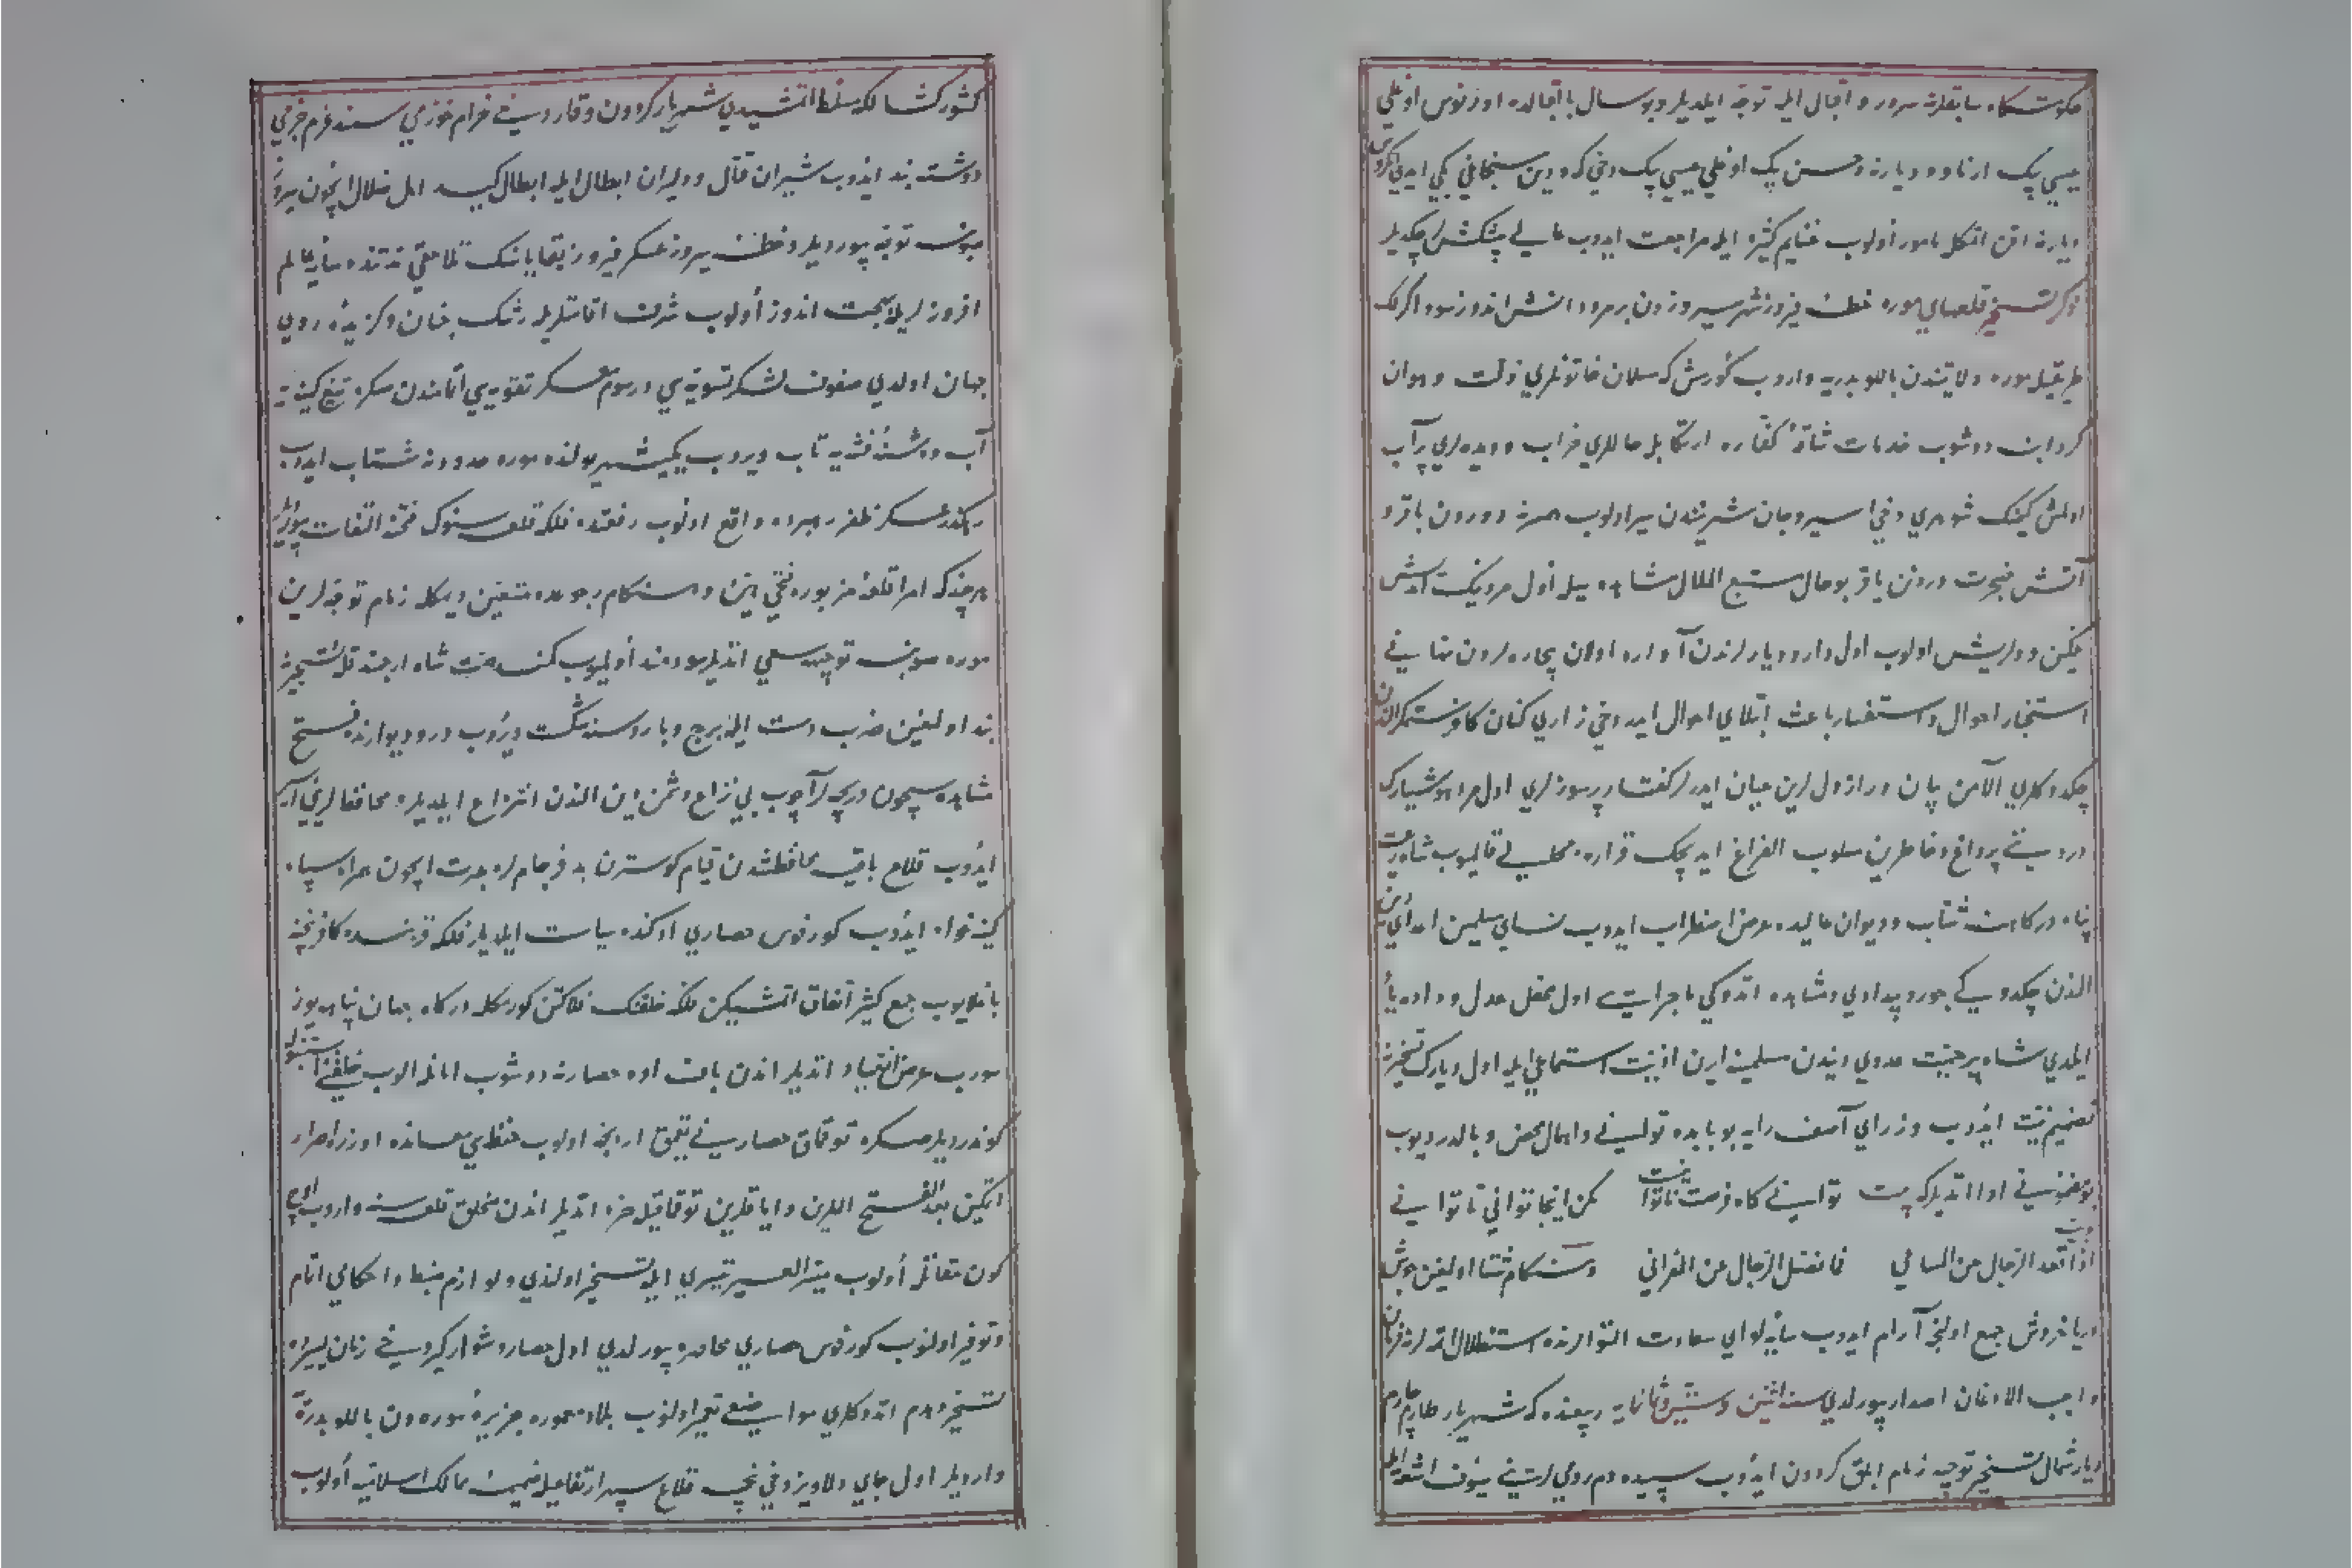 حکومتکاه سابقلرنه سرور و اقبال ایله توجّه ایلدیلر و بو سال باقبالده اورنوس اوغلی
عیسی بک ارناوود دیارنه و حسن بک اوغلی عیسی بک دخی که ودین سنجاغی بکی ایدی انکروس
دیارنه اقن اتمکله مامور اولوب غنایم کثیره ایله مراجعت ایدوب عالی پیشکشلر چکدیلر
ذکر تسخیر قلعهای موره خطهٔ فیروز شهر سیروزدن بر مرد دانش اندوز سوداکرلک
طریقیله موره ولایتندن بالیو بدریه واروب کورمش که مسلمان خاتونلری ذلّت و هوان
کردابنه دوشوب خدمات شاقهٔ کفّاره ارتکابله حاللری خراب و دیده لری پرآب
اولمش کیمنک شوهری دخی اسیر و جان شیرینندن سیر اولوب حسرته دورون باقر و
آتش ضجرت درونن یاقر بو حال مستتبع الملال مشاهده سیله اول مرد نیکت اندیش
غمکین و دلریش اولوب اول دار و دیارلرندن آواره اولان بیچاره لردن نهانی
استخبار احوال و استفسار باعث ابتلای احوال ایدر دخی زاری کنان کافر ستمکر الندن
چکدوکلری الآمن بیان و راز دل لرین عیان ایدرلر کفتار پرسوزلری اول مرد هوشیارک
دروننی پر داغ و خاطرین مسلوب الفراغ ایدیجک قراره مجالی قالمیوب شاه رعیت
پناه درکاهنه شتاب و دیوان عالیده عرض اضطراب ایدوب نسای مسلمین اعدای دین
الندن چکدوکی جور و بیدادی و مشاهده اتدوکی ماجرایی اول محفل عدل و داده یاد
ایلدی شاه پر حمیّت عدوی دیندن مسلمینه ایرن اذیّت استماعی ایله اول دیارک تسخیرنه
تصمیم نیّت ایدوب وزرای آصف رایه بو بابده توانی و اهمال محض وبالدر دیوب
بو مضمونی ادا اتدیلر که بیت توانی کاه فرصت ناتوانیست مکن اینجا توانی تا توانی
بیت اذا قعد الرجال عن المساعی فما فضل الرجال عن الغوانی و هنکام شتا اولیغین جیوش
دریا خروش جمع اولنجه آرام ایدوب سایهٔ لوای سعادت التوالرنده استظلال اتملرنه فرمان
واجب الاذعان اصدار بیورلدی سنه اثنین و ستّین و ثمانمایه ربیعنده که شهریار طارم چارم
دیار شمال تسخیرنه توجیه زمام ابلق کردون ایدوب سپیده دم رومی لرینی سیوف اشعّه ایله
کشورکشالکه مسلّط اتمشیدی شهریار کردون وقار دخی خرام خوزی سمند عزم جزمی
دوشته بند ایدوب شیران قتال و دلیران ابطال ایله ابطال کید اهل ضلال ایچون سیروز
صوبنه توجّه بیوردیلر و خطهٔ سیروز عسکر فیروز بقایاسنک تلاحقی ذتنده سایهٔ عالم
افروزلریله بهجت اندوز اولوب شرف اقامتلریله رشک جنان و کزیدهٔ روی
جهان اولدی صفوف لشکر تسویه سی و رسوم عسکر تقویه سی اتمامندن صکره تیغ کینه یه
آب و دشنهٔ فتنه یه تاب ویروب یکیشهر یولنده موره حدودنه شتاب ایدوب
رهکذر عسکر ظفر رهبرده واقع اولوب رفعتده فلکه قلعه سنوک فتحنه التفات بیورلمیوب
هرچند که امرا قلعهٔ مزبوره فتحی اهمّ و هنکام رجوعده متعیّن دیمکله زمام توجّه لرین
موره صوبنه توجیهه سعی اتدیلر سودمند اولمیوب کمند همّت شاه ارجمند قلعه تسخیرنه
بند اولمغین ضرب دست ایله برج و باروسنه شکست ویروب در و دیوارنده فتح
مشاهده سیچون دریچه لر آچوب بی نزاع دشمن دین الندن انتزاع ایلدیلر و محافظلرینی اسیر
ایدوب قلاع باقیه محافظتندن قیام کوسترن بد فرجام لره عبرت ایچون همراه سپاه
کینه خواه ایدوب کورفوس حصاری اوکنده سیاست ایلدیلر فلکه قربنده کافر بنچه
باغلایوب جمع کثیر اتفاق اتمشیکن فلکه خلقنک فلاکتن کورمکله درکاه جهان پناهه یوز
سورب عرض انقیاد اتدیلر اندن باف اده حصارنه دوشوب امانله الوب خلقنی استنبوله
کوندردیلر صکره توقماق حصارینی تیمّق اربجه اولوب حفظی معسانده اوزره اصرار
اتمکین بعد الفتح اللرین و ایاقلرین توقماقیله خرد اتدیلر اندن مخلق قلعه سنه واروب اوچ
کون مقاتله اولوب میسّر العسیر تیسیری ایله تسخیر اولندی و لوازم ضبط و احکامی اتمام
و توفیر اولنوب کورفوس حصاری محاصره بیورلدی اول حصار دشوارکیر دخی زمان یسیرده
تسخیر و هدم اتدوکلری مواضعی تعمیر اولنوب بلاد معموره جزیرهٔ موره دن بالیو بدریه
واردیلر اول جای دلاویز دخی نیچه قلاع سپهر ارتفاعیله ضمیمهٔ ممالک اسلامیّه اولوب